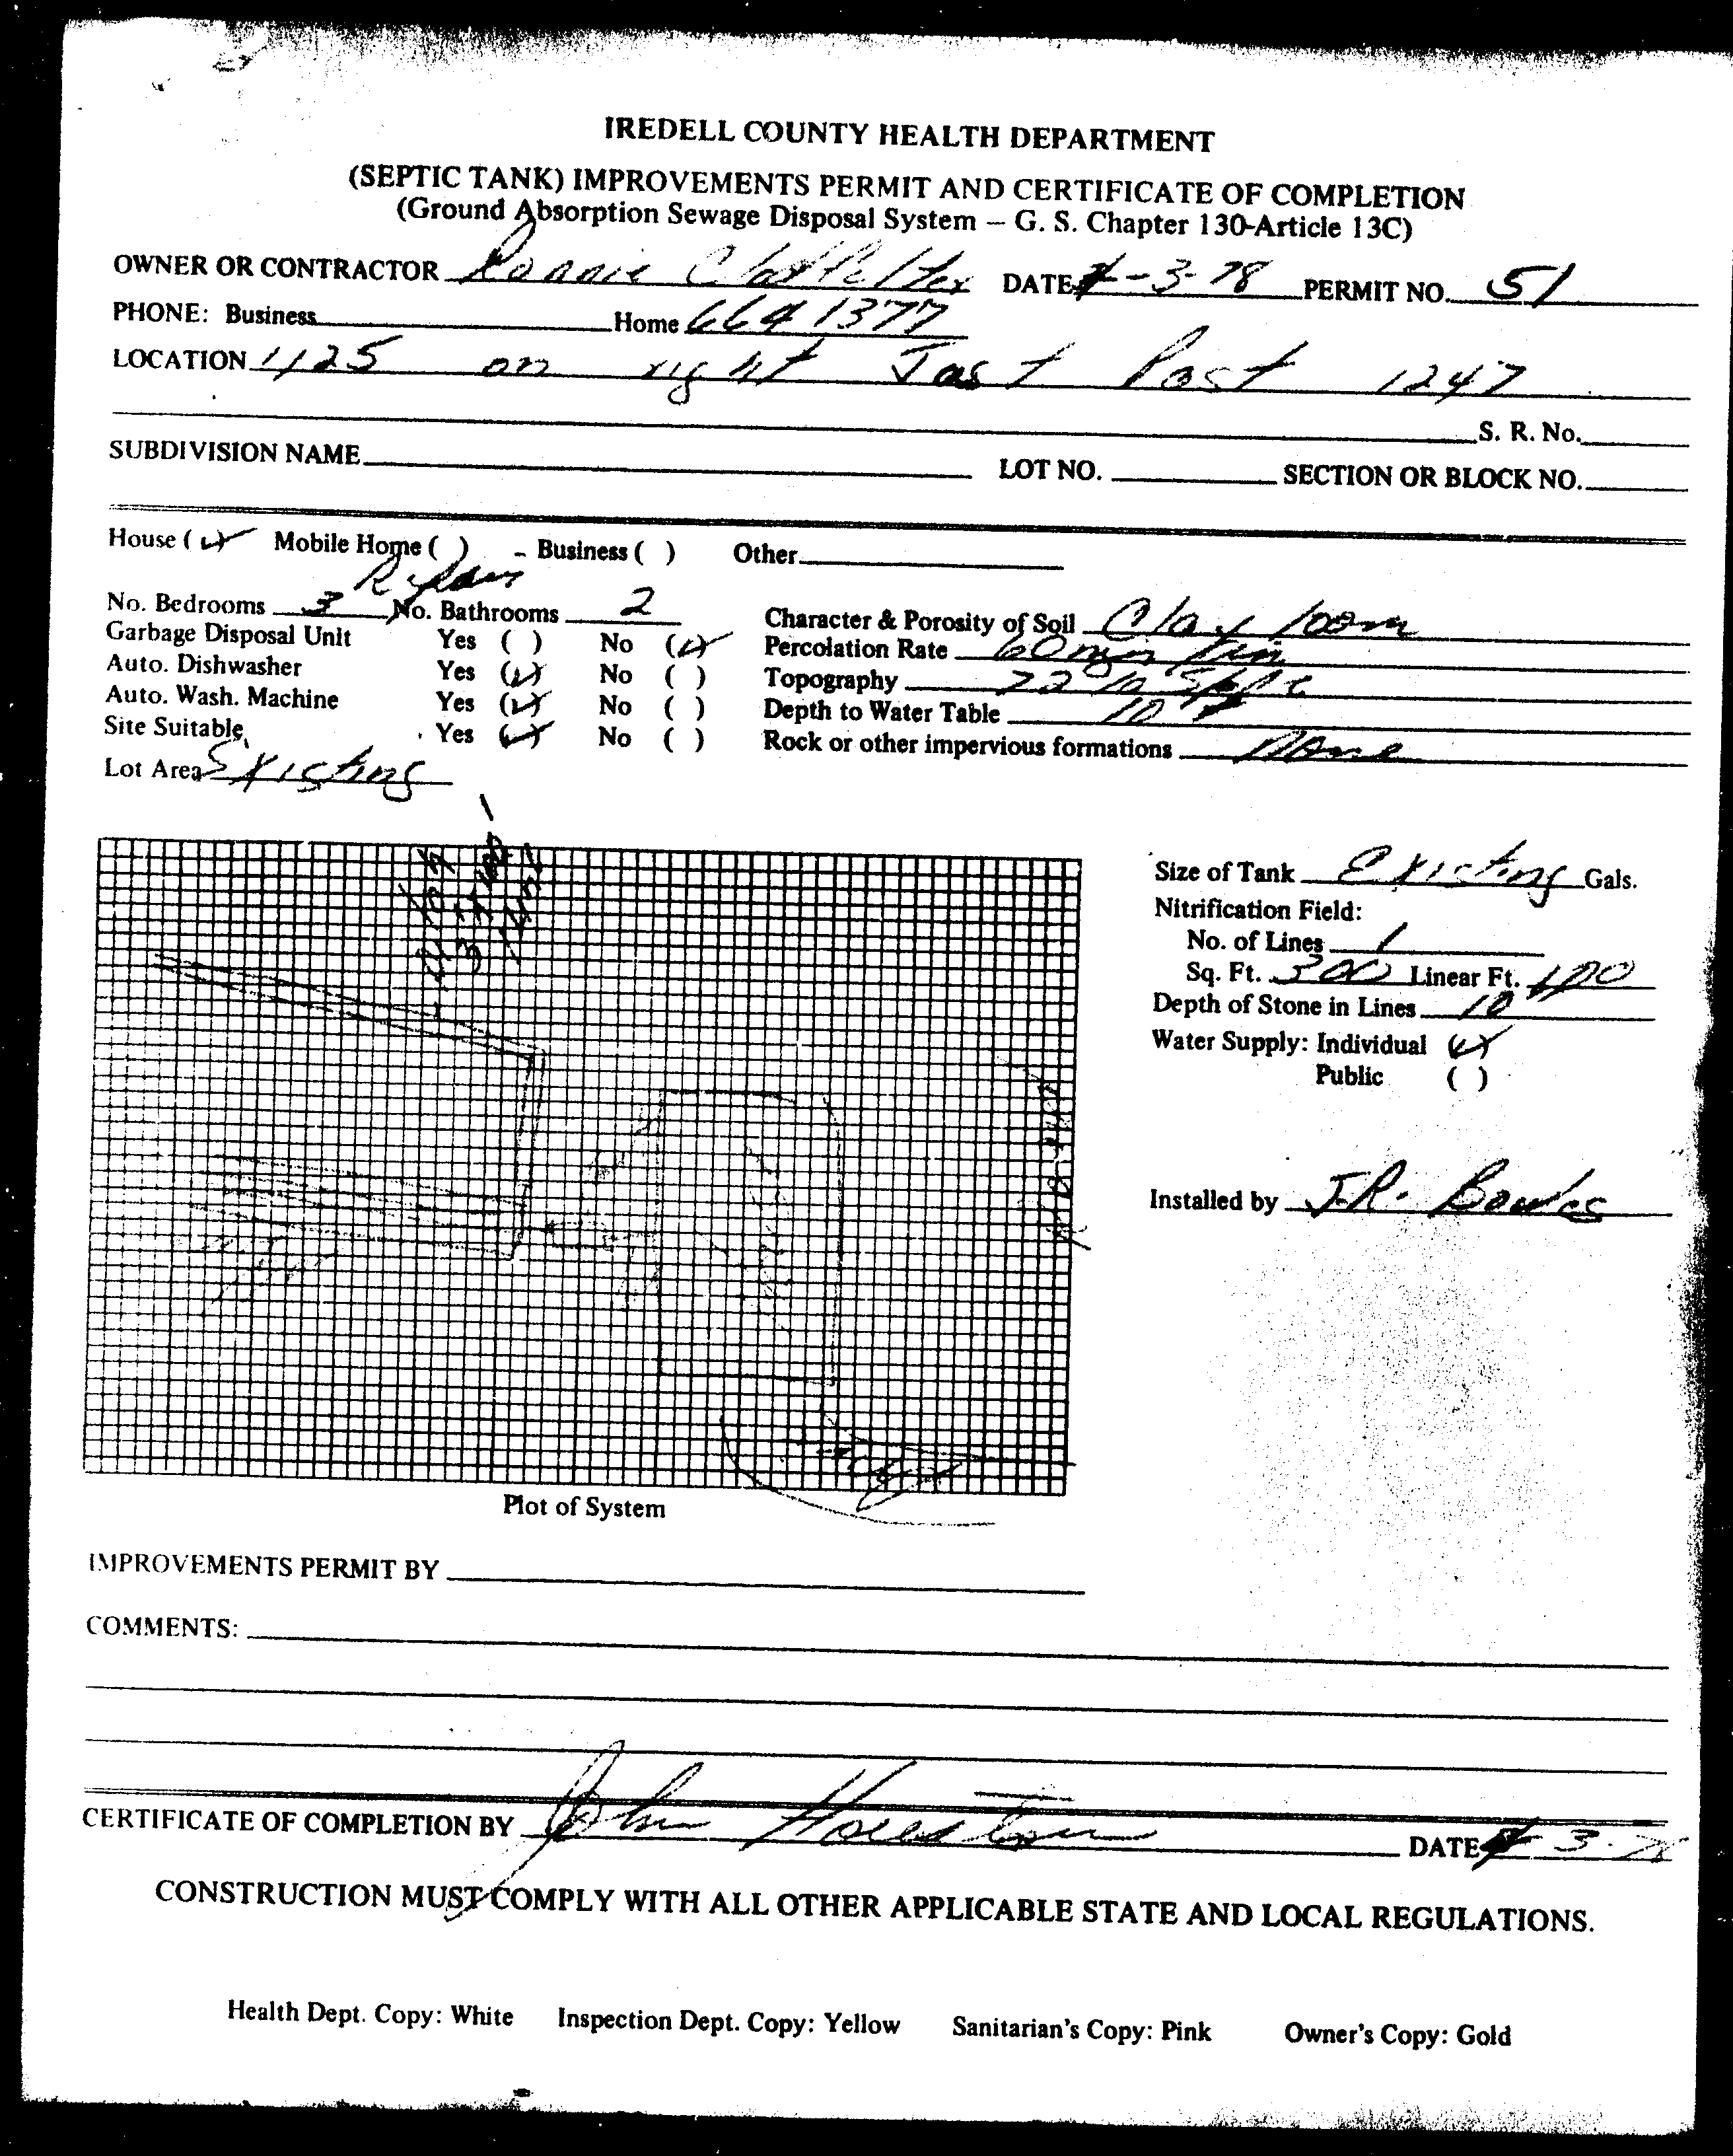 IREDELL COUNTY HEALTH DEPARTMENT
(SEPTIC TANK) IMPROVEMENTS PERMIT AND CERTIFICATE OF COMPLETION
(Ground Absorption Sewage Disposal System – G. S. Chapter 130-Article 13C)
OWNER OR CONTRACTOR Ronnie DATE -3-78 PERMIT NO. 51
PHONE: Business Home 664 1377
LOCATION 1125 on right Just Past 1247
S. R. No.
SUBDIVISION NAME LOT NO. SECTION OR BLOCK NO.
House (✓) Mobile Home ( ) - Business ( ) Other
No. Bedrooms 3 No. Bathrooms 2
Garbage Disposal Unit Yes ( ) No (✓)
Auto. Dishwasher Yes (✓) No ( )
Auto. Wash. Machine Yes (✓) No ( )
Site Suitable Yes (✓) No ( )
Lot Area Existing
Character & Porosity of Soil Clay loam
Percolation Rate 60 min / in
Topography
Depth to Water Table 10
Rock or other impervious formations None
Size of Tank Existing Gals.
Nitrification Field:
No. of Lines 1
Sq. Ft. 300 Linear Ft. 100
Depth of Stone in Lines 10
Water Supply: Individual (✓)
Public ( )
Installed by J.R.
Plot of System
IMPROVEMENTS PERMIT BY
COMMENTS:
CERTIFICATE OF COMPLETION BY John Houston DATE 3-78
CONSTRUCTION MUST COMPLY WITH ALL OTHER APPLICABLE STATE AND LOCAL REGULATIONS.
Health Dept. Copy: White Inspection Dept. Copy: Yellow Sanitarian's Copy: Pink Owner's Copy: Gold